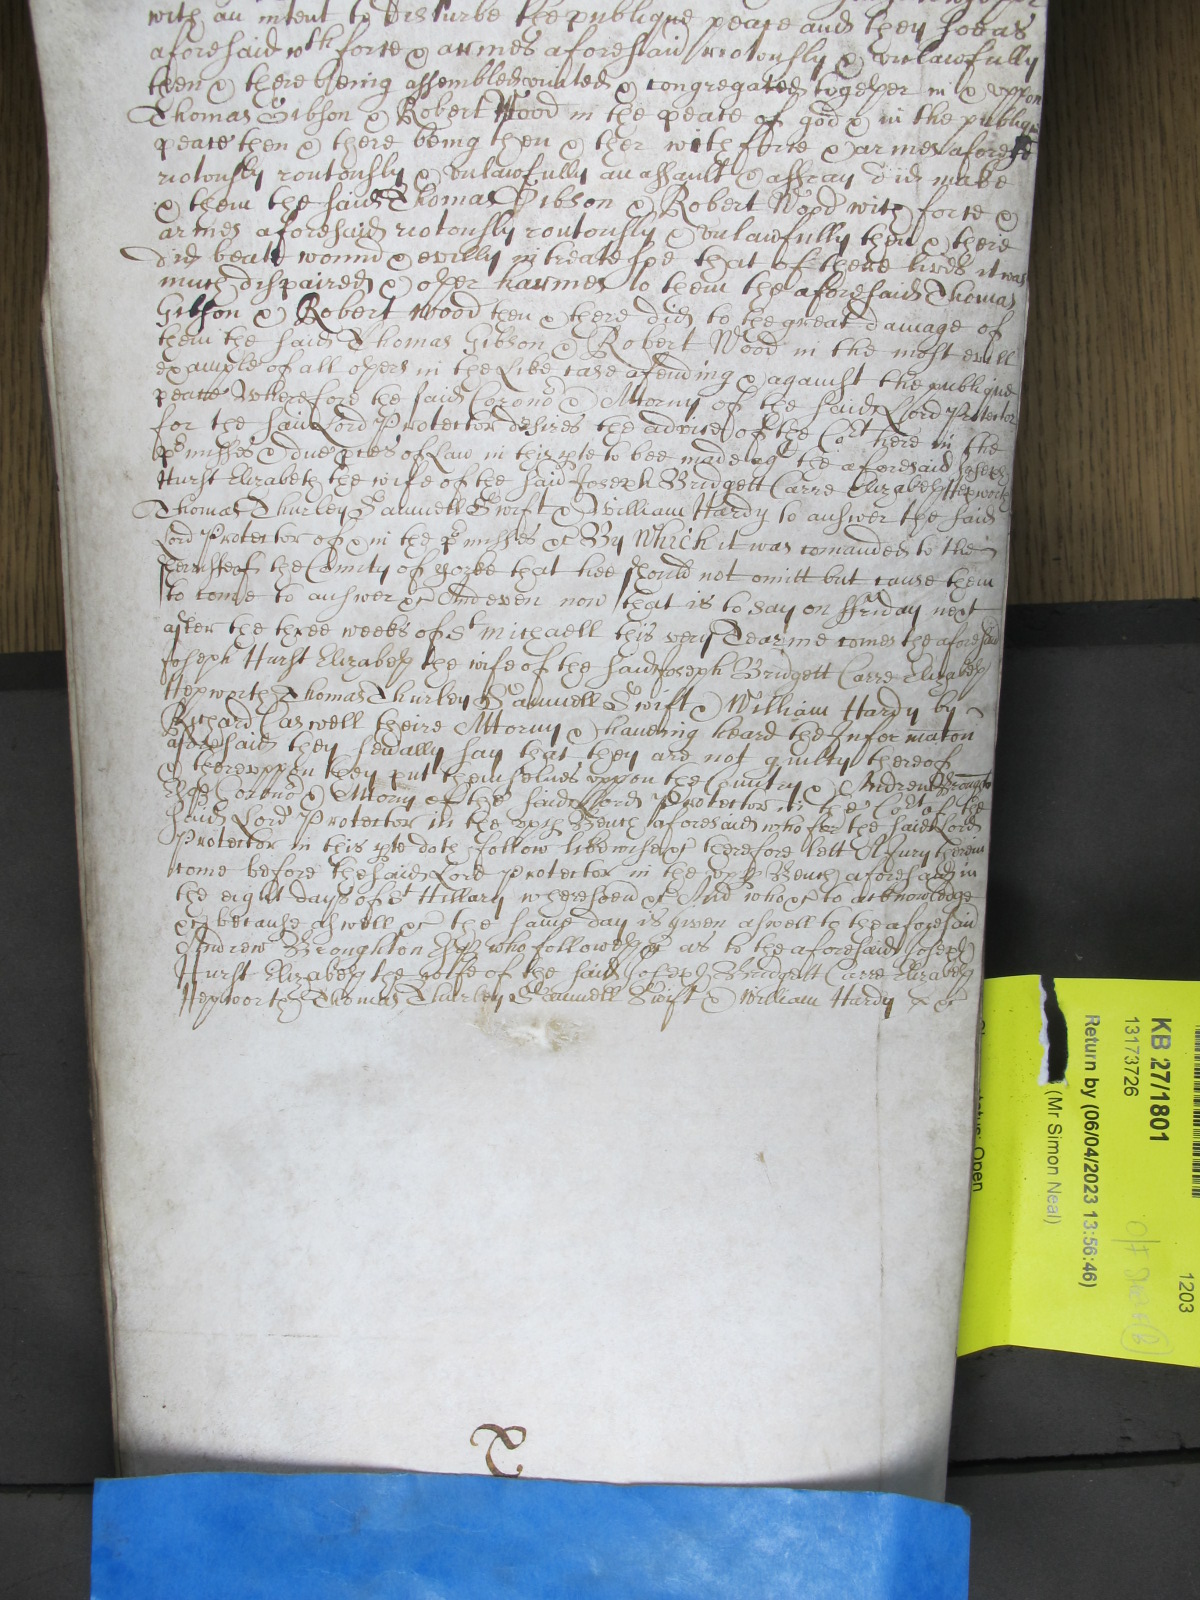 with an intent to disturbe the publique peace and they soe as
aforesaid wth force & armes aforesaid riotously & unlawfully
then & there being assembled united & congregated together in & uppon
Thomas Gibson & Robert Wood in the peace of god & in the publiq
peace then & there being then & ther with force & armes aforesd
riotously routously & unlawfully an assault & affray did make
& them the said Thomas Gibson & Robert Wood with force &
armes aforesaid riotously routously & unlawfully then & there
did beate wound & evilly intreate soe that of there lives it was
much dispaired & other harmes to them the aforesaid Thomas
Gibson & Robert Wood then & there did to the great damage of
them the said Thomas Gibson & Robert Wood in the most evill
example of all others in the like case afending & against the publique
peace Wherefore the said Corono & Attorny of the said Lord Protector
for the said Lord Protector desires the advice of the Cort here in the
pmisses & due pces of Law in this pte to bee made agt the aforesaid Joseph
Hurst Elizabeth the wife of the said Joseph Bridgett Carre Elizabeth Hepworth
Thomas Thurley Samuell Swift & William Hardy to answer the said
Lord Protector of & in the pmisses &c By Which it was comanded to the
Sherriffe of the County of Yorke that hee should not omitt but cause them
to come to answer &c And even now that is to say on ffriday next
after the three weekes of St Michaell this very Tearme comes the aforesaid
Joseph Hurst Elizabeth the wife of the said Joseph Bridgett Carre Elizabeth
Hepworth Thomas Thurley Samuell Swift & William Hardy by
Richard Caswell theire Attorny & haveing heard the Informacon
aforesaid they sevally say that they are not guilty thereof
& thereuppon they put themselves uppon the Country & Andrew Broughton
Esqr Corono & Attorny of the said Lord Protector in the Cort of the
said Lord Protector in the upp Bench aforesaid who for the said Lord
Protector in this pte doth follow likewise &c therefore lett A Jury thereon
come before the said Lord Protector in the upp Bench aforesaid in
the eight dayes of St Hillary wheresoever &c And who &c to acknowledge
&c because aswell &c the same day is given aswell to the aforesaid
Andrew Broughton Esqr who followeth &c as to the aforesaid Joseph
Hurst Elizabeth the wife of the said Joseph Bridgett Carre Elizabeth
Hepworth Thomas Thurley Samuell Swift & William Hardy &c &c
KB 27/1801
13173726
Return by (06/04/2023 13:56:46)
(Mr Simon Neal)
1203
Open